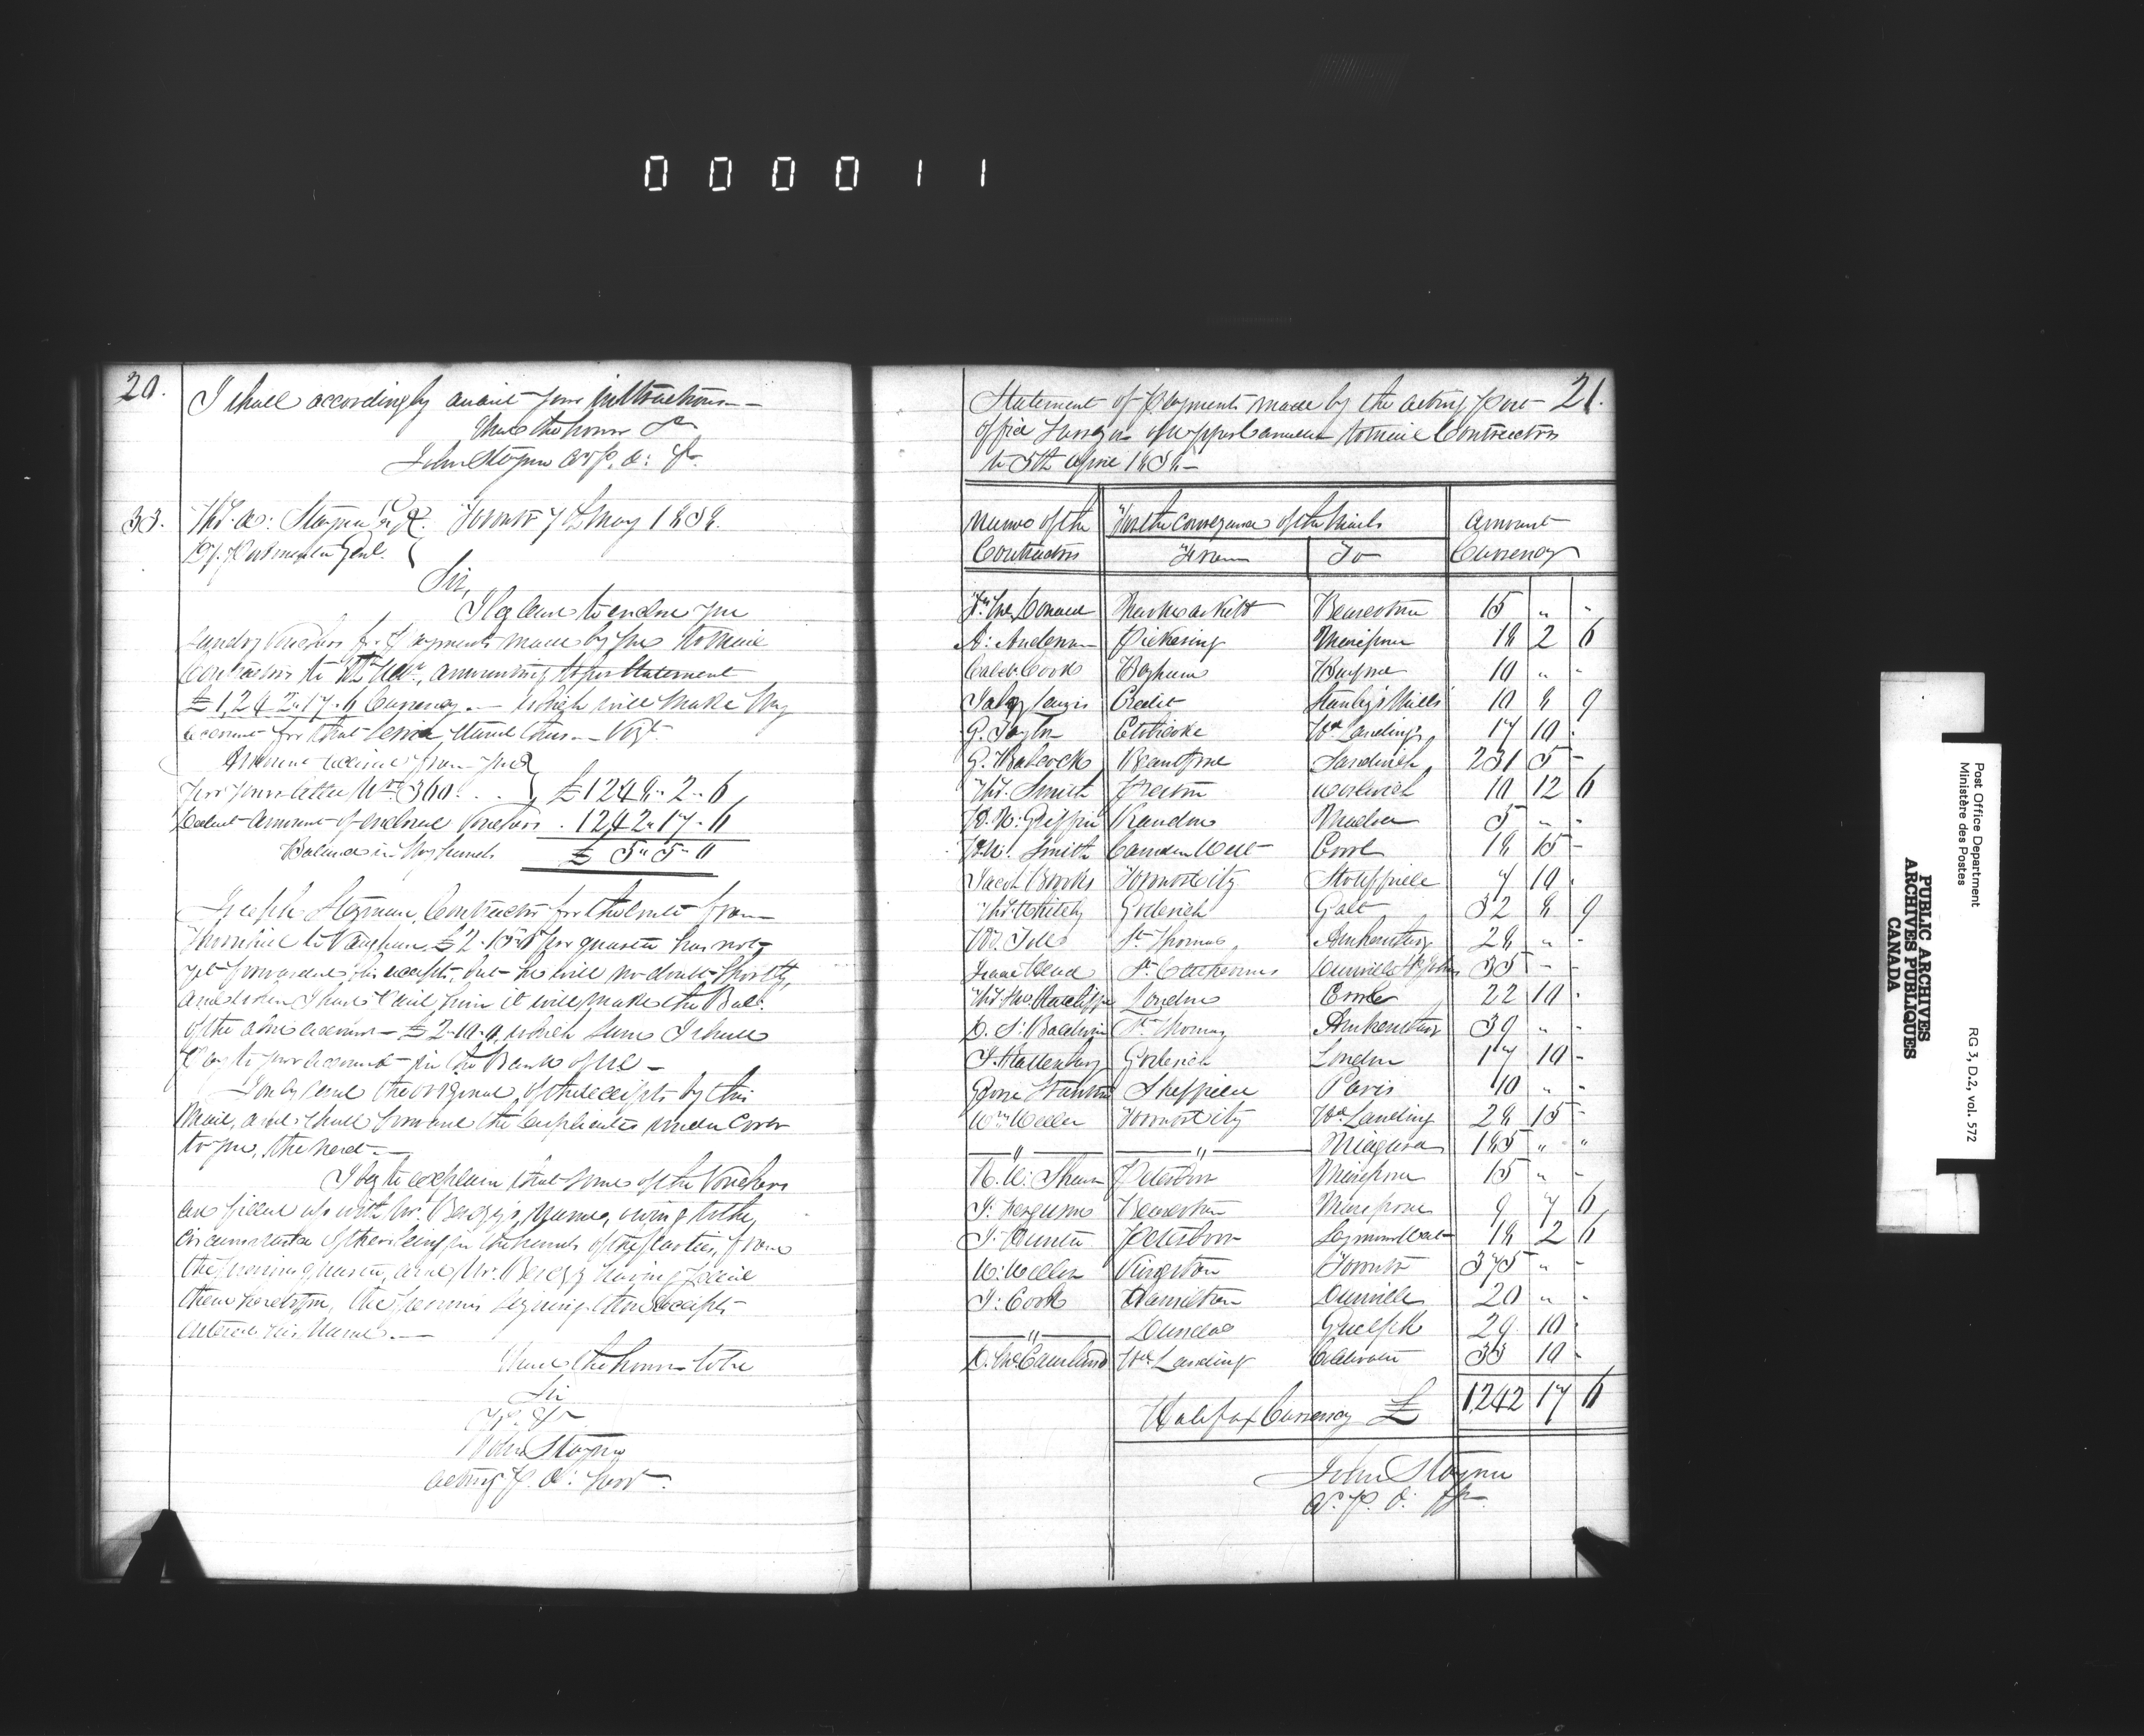 000011
20.
I shall accordingly await your instructions
I have the honor &c
John Stayner A P. O: Sr.
33. Ths. A: Stayner Esqr. Toronto 7th May 1838.
Dy. Postmaster Genl.
Sir,
I beg leave to enclose you
Sundry Vouchers for payments made by me to Mail
Contractors to 5th Ulto., amounting as per Statement
£1,242.17.6 Currency. — which will make my
account for that service stand thus — Vizt.
Amount received from you
per your letter No. 360. . . £1248.. 2.. 6
Deduct amount of enclosed Vouchers . 1242.. 17.. 6
Balance in my hands £ 5.. 5.. 0
Joseph Stegman, Contractor for the route from
Thornhill to Vaughan, £2.15 per quarter has not
yet forwarded his receipts, but he will no doubt shortly,
and when I have paid him it will make the Bal:
of the above account £2.10.0, which sum I shall
pay to your account in the Bank of U C —
I only send the original of the receipts by this
Mail, and shall forward the duplicates under cover
to you, the next —
I beg to explain that some of the Vouchers
are filled up with Mr. Berczy's name, owing to the
circumstance of their being in the hands of the parties, from
the previous quarter, and Mr. Berczy having
them, the persons signing the receipts
entered his name. —
I have the honor to be
Sir
&c. &c.
John Stayner
Acting P. O: Surv.
21.
Statement of Payments made by the acting Post
Office Surveyor of Upper Canada to Mail Contractors
to 5th April 1838 —
Names of the For the conveyance of the Mails Amount
Contractors From To Currency
Newmarket Beaverton 15 " "
A: Anderson Pickering Mariposa 18 2 6
Caleb Cook Bayham Burford 10 " "
Credit Stanley's Mills 10 8 9
G. Taylor Etobicoke Hd. Landing 17 10 -
G. Babcock Brantford Sandwich 231 5 -
Ths. Smith Preston Woolwich 10 12 6
Griffin Simcoe 5 " "
Wm. Smith Camden West 18 15 -
Jacob Brooks Toronto City Stouffville 7 10 -
Ths. Whitely Goderich Galt 32 8 9
St. Thomas Amherstburg 28 " -
Isaac Head St. Catherines Dunnville & Pt. Johns 35 - -
London 22 10 -
D. S. Baldwin St. Thomas Amherstburg 39 " -
Goderich London 17 10 -
Sheffield Paris 10 " -
Wm. Weller Toronto City Hd. Landing 28 15 -
" " Niagara 185 " "
Shaw Peterboro Mariposa 15 " -
J. Ferguson Beaverton Mariposa 9 7 6
J. Hunter Peterboro Seymour West 18 2 6
W. Weller Kingston Toronto 375 " -
J. Cook Hamilton Dunnville 20 " -
" Dundas Guelph 29 10 -
D. McCausland Hd. Landing Coldwater 33 10 -
Halifax Currency £ 1242 17 6
John Stayner
A. P. O: Sr.
Post Office Department
Ministère des Postes
RG 3, D.2, vol. 572
PUBLIC ARCHIVES
ARCHIVES PUBLIQUES
CANADA